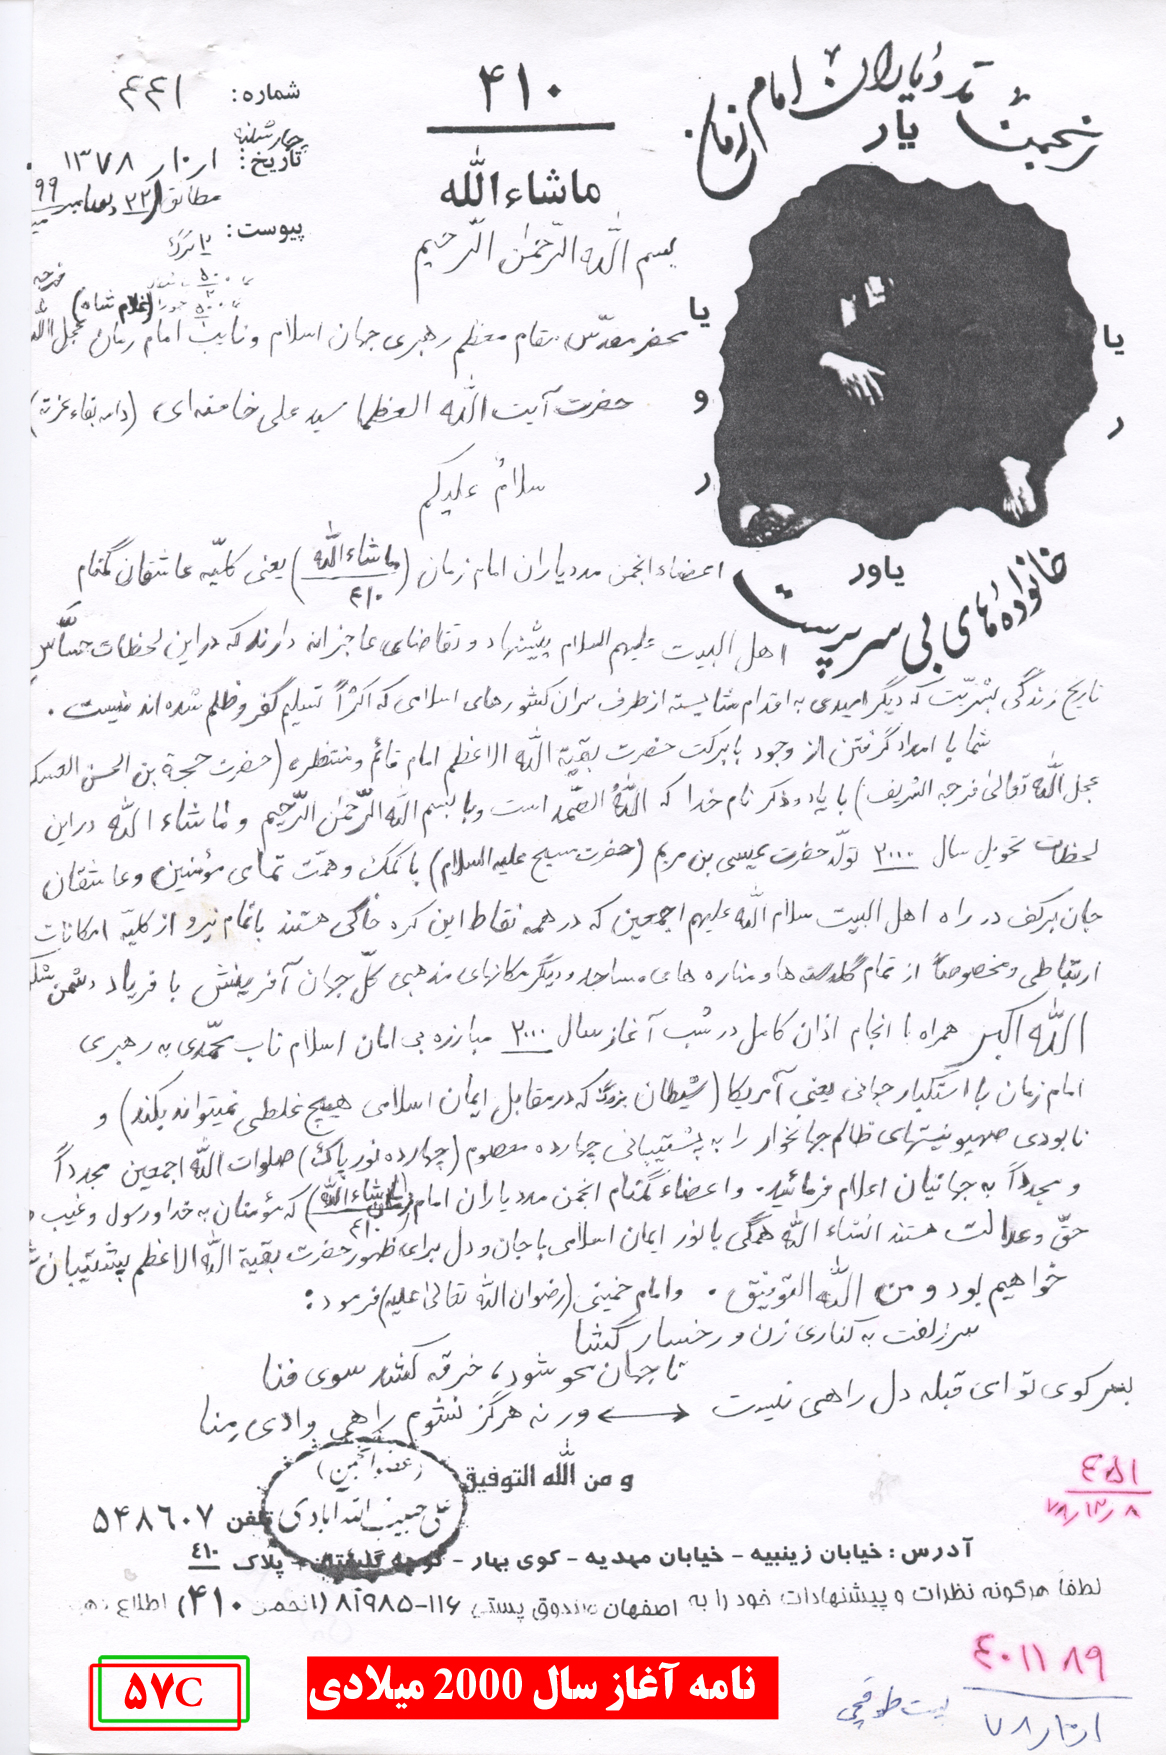 انجمن مددیاران امام زمان
یار
یاور
یار
یاور
خانواده‌های بی سرپرست
۴۱۰
ماشاءالله
شماره: ۴۴۱
چهارشنبه
تاریخ: ۱ر۱۰ر۱۳۷۸
مطابق ۲۲ دسامبر ۹۹
پیوست: ۲ برگ
(غلام شاه)
بسم اللّه الرّحمٰن الرّحیم
محضر مقدّس مقام معظم رهبری جهان اسلام و نایب امام زمان عجل اللّه
حضرت آیت اللّه العظما سید علی خامنه‌ای (دامه بقاء عزته)
سلامٌ علیکم
اعضاء انجمن مددیاران امام زمان (ماشاءاللّه ۴۱۰) یعنی کلیّه عاشقان گمنام
اهل البیت علیهم السلام پیشنهاد و تقاضای عاجزانه دارند که در این لحظات حسّاس
تاریخ زندگی بشریّت که دیگر امیدی به اقدام شایسته از طرف سران کشورهای اسلامی که اکثراً تسلیم کفر و ظلم شده‌اند نیست .
شما با امداد گرفتن از وجود با برکت حضرت بقیة اللّه الاعظم امام قائم و منتظره (حضرت حجة بن الحسن العسکر
عجل اللّه تعالیٰ فرجه الشریف) با یاد و ذکر نام خدا که اللّهُ الصّمد است و با بسم اللّه الرّحمٰن الرّحیم و ماشاء اللّه در این
لحظات تحویل سال ۲۰۰۰ تولّد حضرت عیسی بن مریم (حضرت مسیح علیه السلام) با کمک و همّت تمامی مؤمنین و عاشقان
جان بر کف در راه اهل البیت سلام اللّه علیهم اجمعین که در همه نقاط این کره خاکی هستند با تمام نیرو از کلیّه امکانات
ارتباطی و مخصوصاً از تمام گلدسته‌ها و مناره‌های مساجد و دیگر مکانهای مذهبی کلّ جهان آفرینش با فریاد دشمن شکن
اللّه اکبر همراه با انجام اذان کامل در شب آغاز سال ۲۰۰۰ مبارزه بی امان اسلام ناب محمّدی به رهبری
امام زمان با استکبار جهانی یعنی آمریکا (شیطان بزرگ که در مقابل ایمان اسلامی هیچ غلطی نمیتواند بکند) و
نابودی صهیونیستهای ظالم جهانخوار را به پشتیبانی چهارده معصوم (چهارده نور پاک) صلوات اللّه اجمعین مجدداً
و مجدداً به جهانیان اعلام فرمائید. و اعضاء گمنام انجمن مددیاران امام زمان (ماشاءاللّه ۴۱۰) که مؤمنان به خدا و رسول و غیب
حقّ و عدالت هستند انشاء اللّه همگی با نور ایمان اسلامی با جان و دل برای ظهور حضرت بقیة اللّه الاعظم پشتیبان
خواهیم بود و من اللّه التوفیق . و امام خمینی (رضوان اللّه تعالیٰ علیه) فرمود :
سر زلفت به کناری زن و رخسار گشا
تا جهان محو شود، خرقه کشد سوی فنا
بسر کوی تو ای قبله دل راهی نیست ↔ ورنه هرگز نشوم راهی وادی منا
و من اللّه التوفیق
(عضو انجمن)
علی حبیب اللّه آبادی
تلفن ۵۴۸۶۰۷
آدرس : خیابان زینبیه – خیابان مهدیه – کوی بهار – کوچه گلستان – پلاک ۴۱۰
لطفاً هرگونه نظرات و پیشنهادات خود را به اصفهان صندوق پستی ۱۱۶–۸۱۹۸۵ (انجمن ۴۱۰) اطلاع دهید
۴۵۱
۷۸ر۱۲ر۸
۴۰۱۱۸۹
۱ر۱۰ر۷۸
پست طوقچی
نامه آغاز سال 2000 میلادی
۵۷C